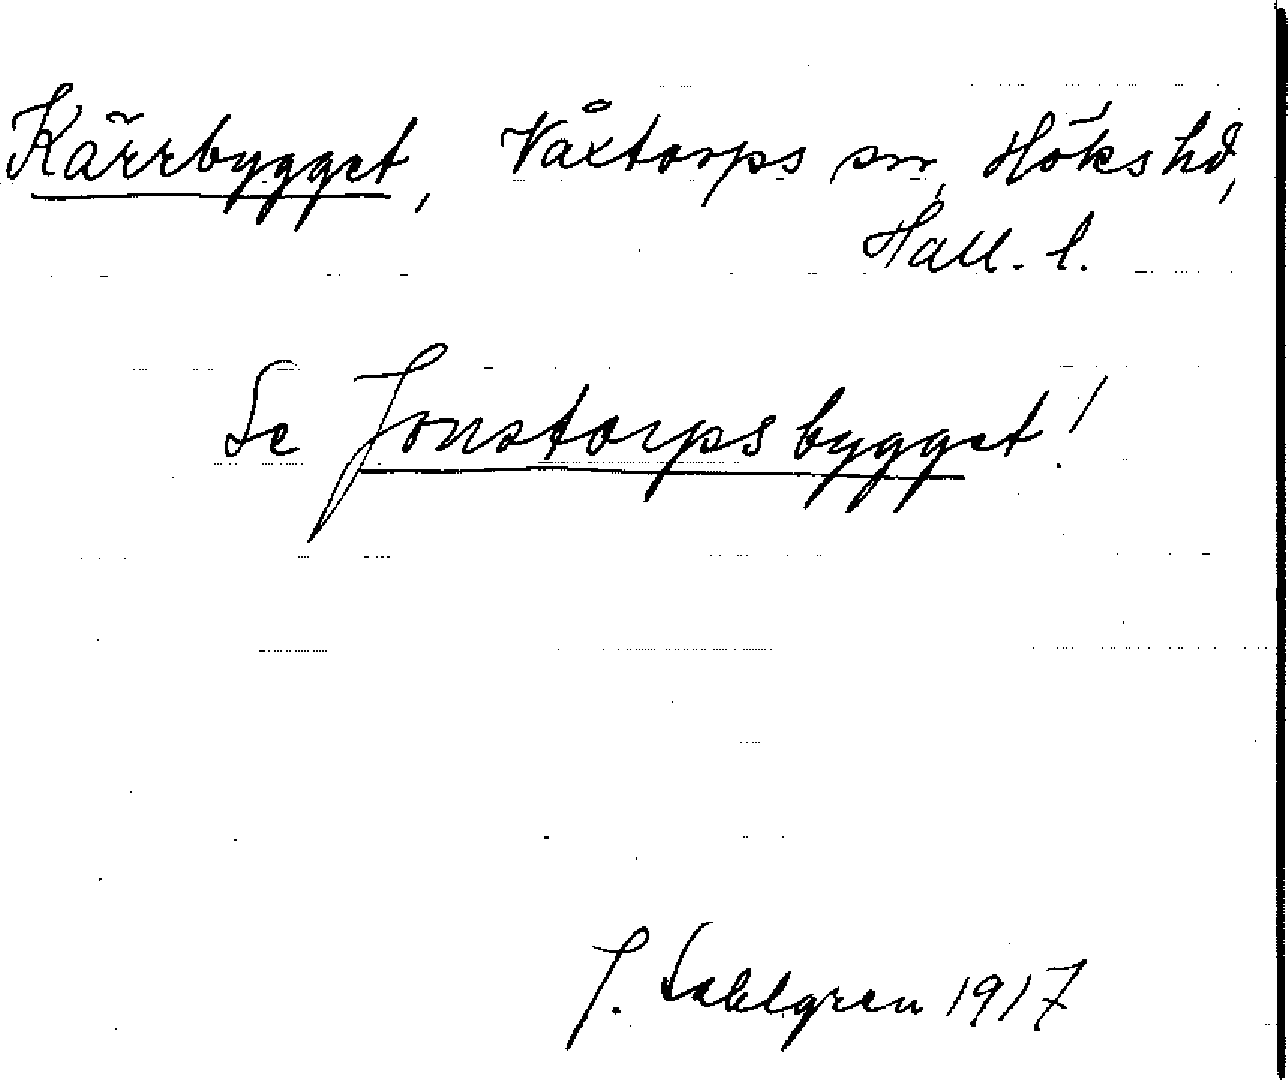 Kärrbygget, Våxtorps sn, Höks hd,
Hall. l.
Se Jonstorpsbygget!
J. Sahlgren 1917